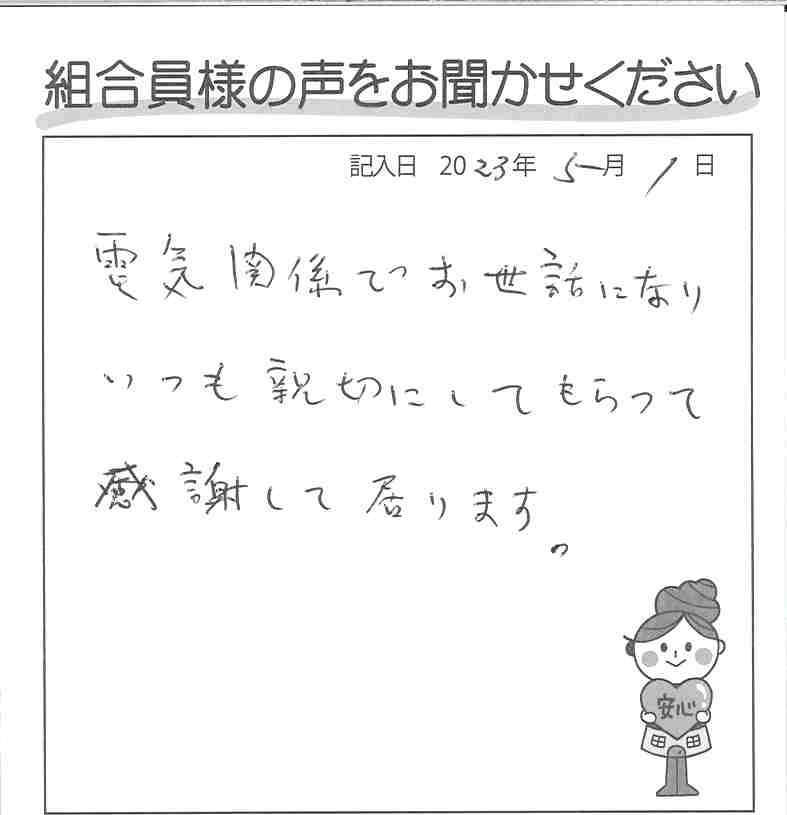 組合員様の声をお聞かせください
記入日 2023年 5月 1日
電気関係でお世話になり
いつも親切にしてもらって
感謝して居ります。
安心